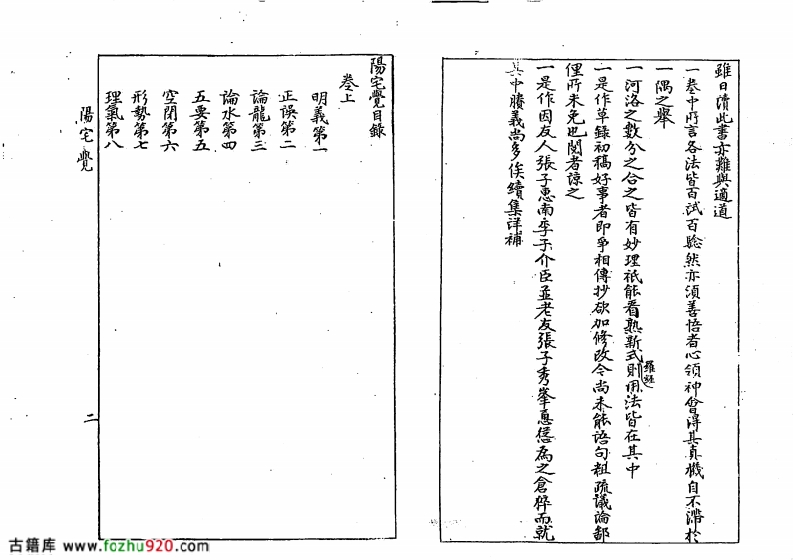 雖日讀此書亦難與適道
一卷中所言各法皆百試百驗然亦須善悟者心領神會得其真機自不滯於
一隅之舉
一河洛之數分之合之皆有妙理祇能看熟新式則用法皆在其中
羅經
一是作草錄初稿好事者即爭相傳抄欲加修改今尚未能語句粗疏議論鄙
俚所未免也閱者諒之
一是作因友人張子惠南李子介臣並老友張子秀峯慫恿為之倉猝而就
其中賸義尚多俟續集詳補
陽宅覺目錄
卷上
明義第一
正誤第二
論龍第三
論水第四
五要第五
空閒第六
形勢第七
理氣第八
陽宅覺
二
古籍库 www.fozhu920.com